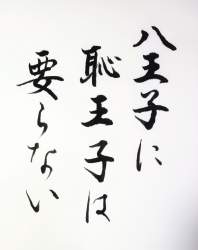 八王子に
恥王子は
要らない